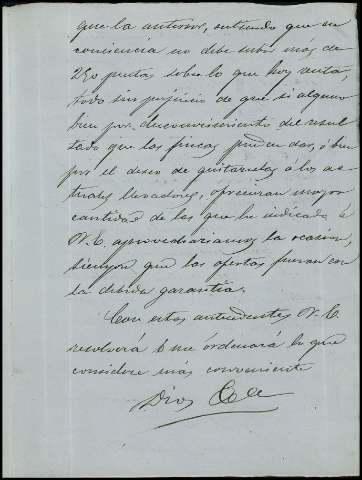 que la anterior, entiendo que en
conciencia no debe subir más de
250 pesetas sobre lo que hoy renta,
todo sin perjuicio de que si alguno
bien por desconocimiento del resul-
tado que las fincas pueden dar, ó bien
por el deseo de quitarselas á los ac-
tuales llevadores, ofrecieran mayor
cantidad de las que he indicado á
V.E. aprovechariamos la ocasion,
siempre que las ofertas fueran con
la debida garantia.
Con estos antecedentes V. E.
resolverá ó me ordenará lo que
considere más conveniente
Dios